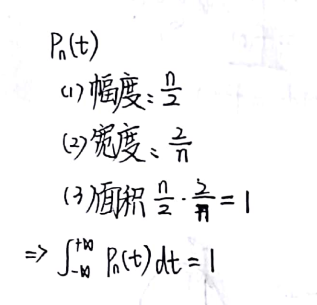 Pₙ(t)
(1) 幅度: n/2
(2) 宽度: 2/n
(3) 面积 n/2 · 2/n = 1
⇒ ∫₋∞⁺∞ Pₙ(t) dt = 1